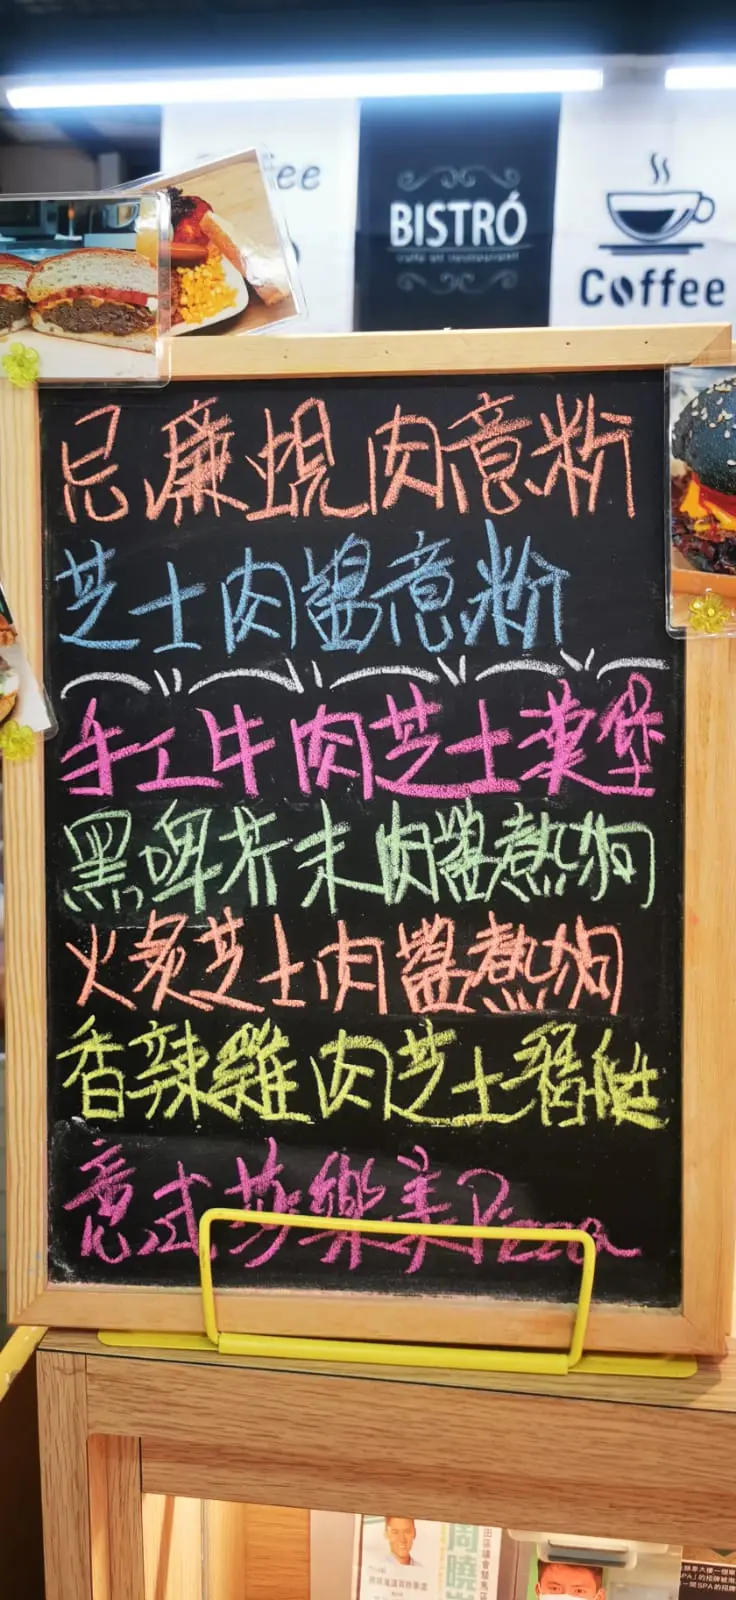 BISTRÓ
café et restaurant
Coffee
忌廉蜆肉意粉
芝士肉醬意粉
手工牛肉芝士漢堡
黑啤芥末肉醬熱狗
火炙芝士肉醬熱狗
香辣雞肉芝士潛艇
意式莎樂美Pizza
周曉